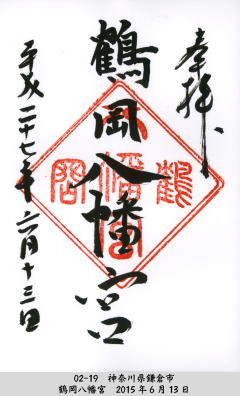 奉拝
鶴岡八幡宮
平成二十七年六月十三日
鶴岡八幡宮
02-19　神奈川県鎌倉市
鶴岡八幡宮　2015年6月13日